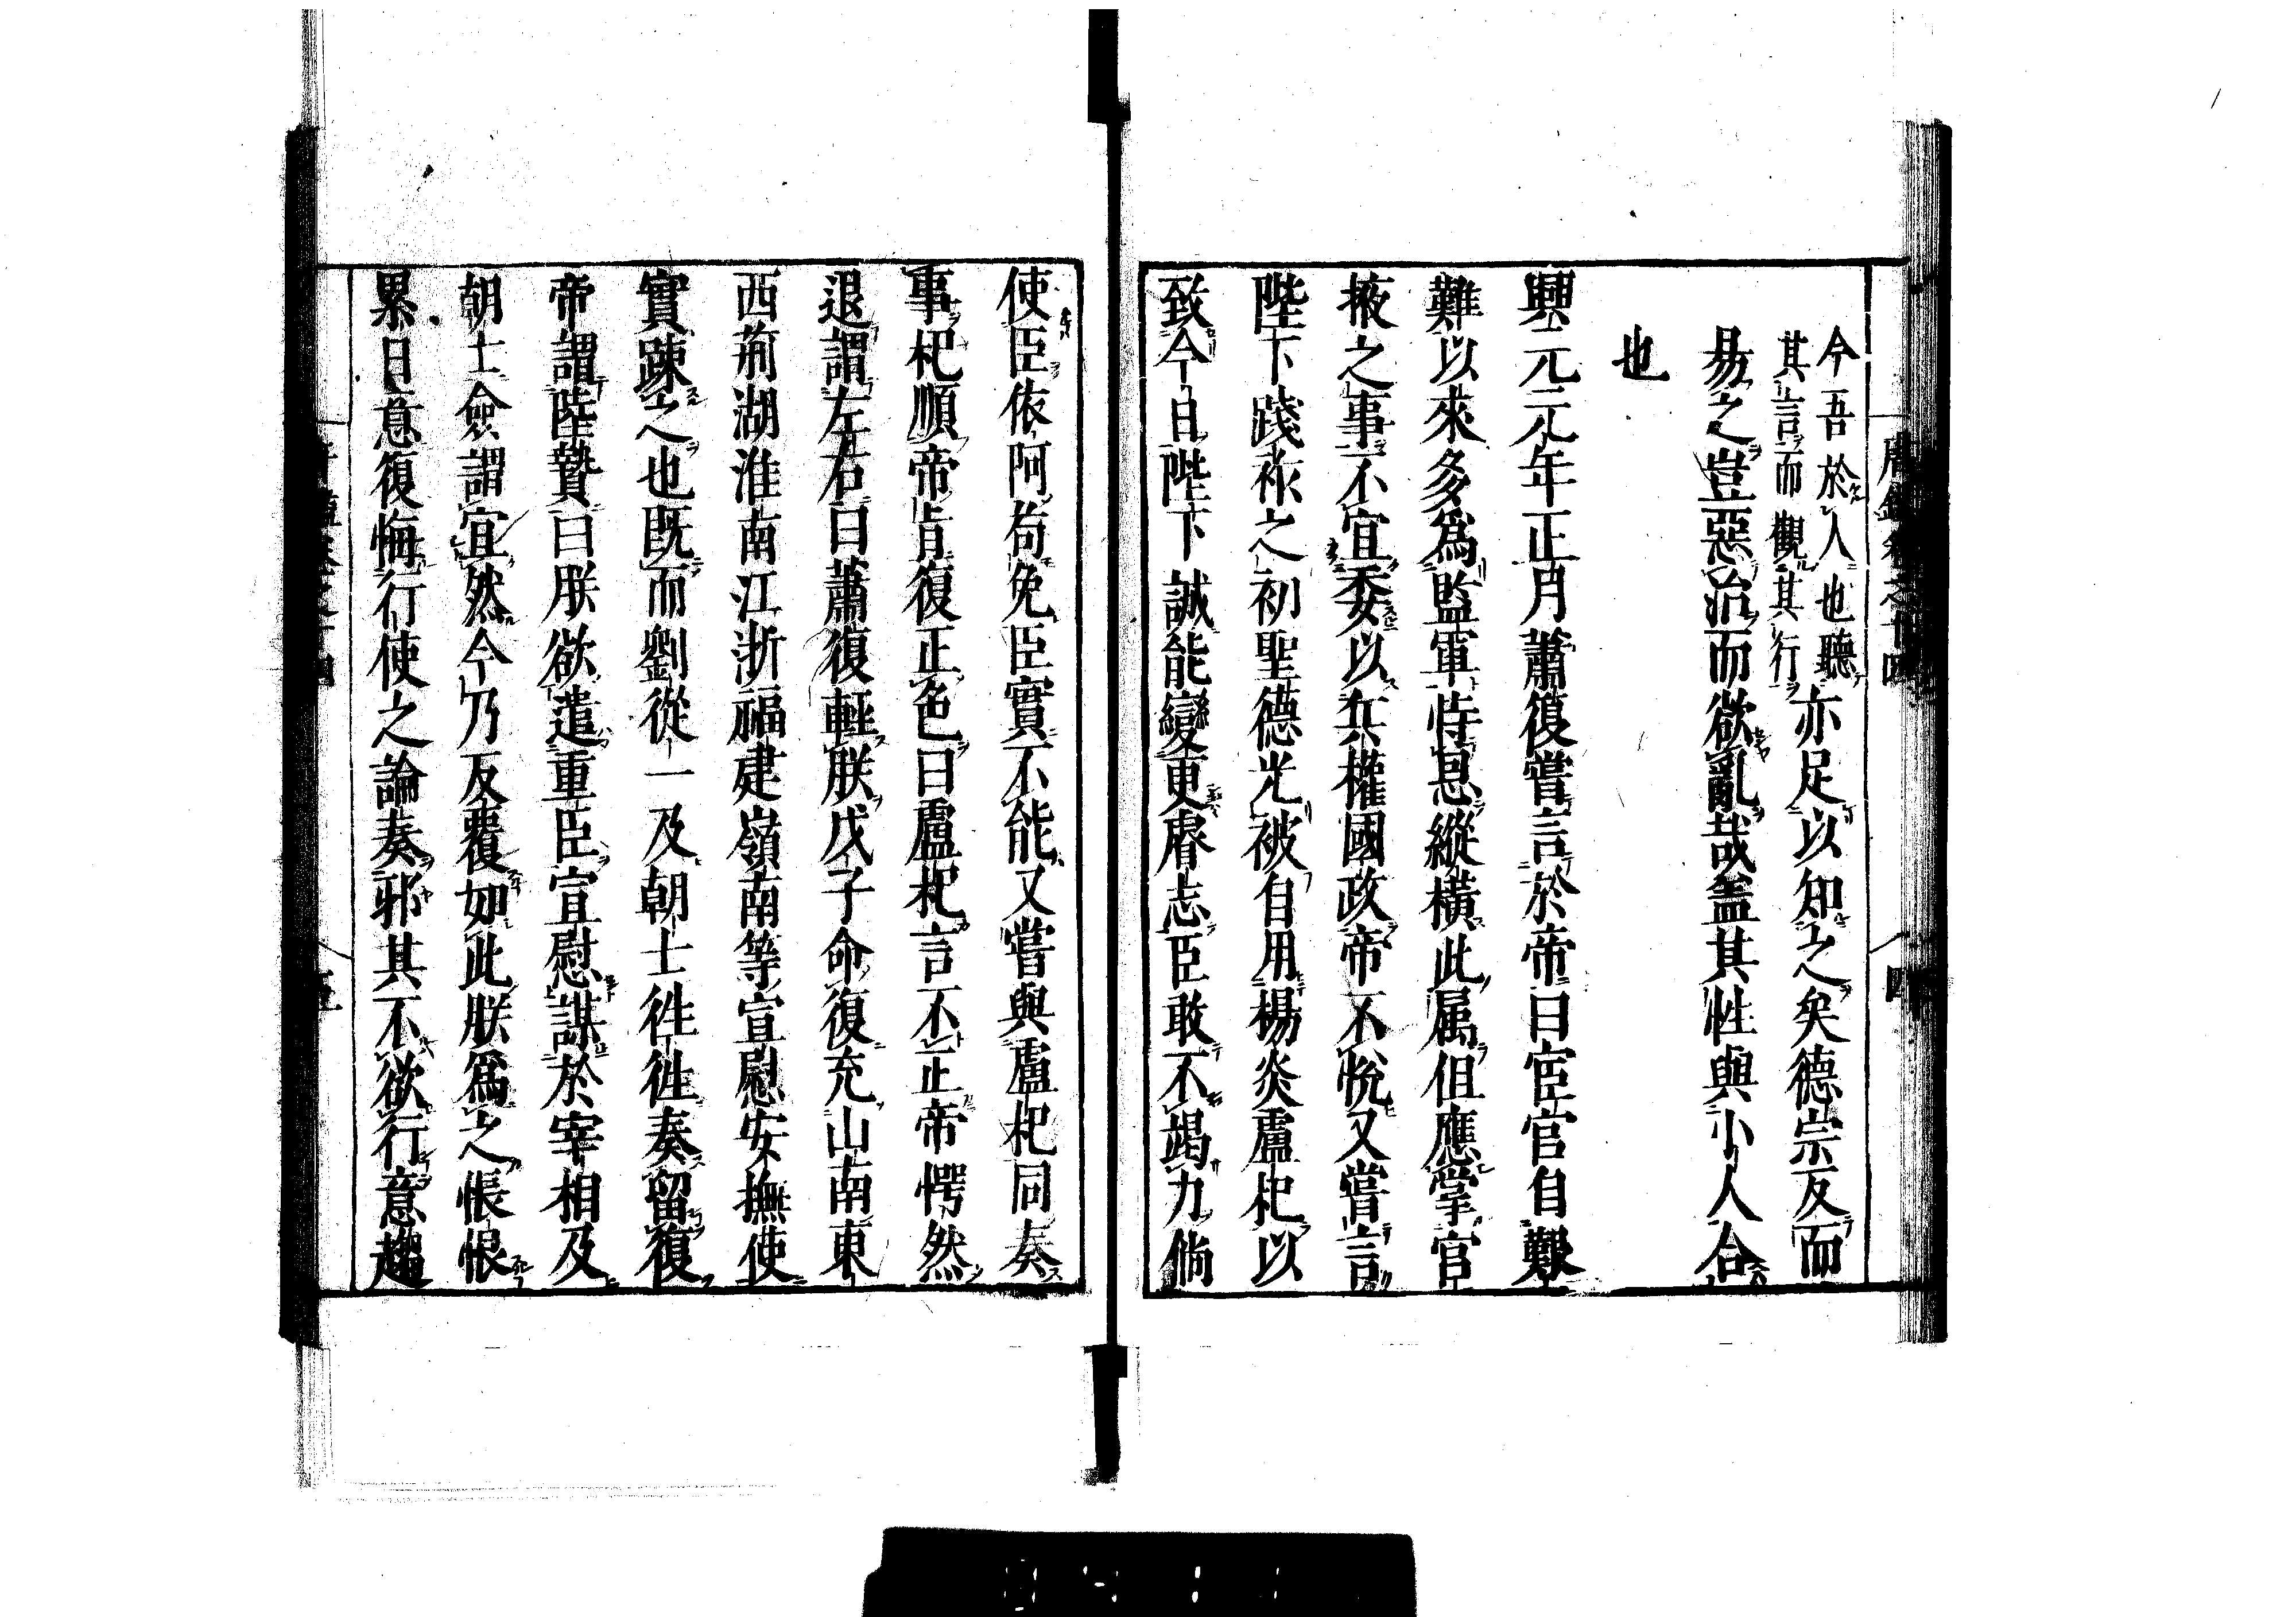 唐鑑卷之廿四 四
今吾於人也聽其言而觀其行亦足以知之矣德宗反而
易之豈惡治而欲亂哉盖其性與小人合
也
興元元年正月蕭復嘗言於帝曰宦官自艱
難以來多爲監軍恃恩縱橫此属但應掌宮
掖之事不宜委以兵權國政帝不悅又嘗言
陛下踐祚之初聖德光被自用楊炎盧杞以
致今日陛下誠能變更睿志臣敢不竭力倘
使臣依阿苟免臣實不能又嘗與盧杞同奏
事杞順帝旨復正色曰盧杞言不正帝愕然
退謂左右曰蕭復輕朕戊子命復充山南東
西荊湖淮南江浙福建嶺南等宣慰安撫使
實踈之也既而劉從一及朝士徃徃奏留復
帝謂陸贄曰朕欲遣重臣宣慰謀於宰相及
朝士僉謂宜然今乃反覆如此朕爲之悵恨
累日意復悔行使之論奏邪其不欲行意趨